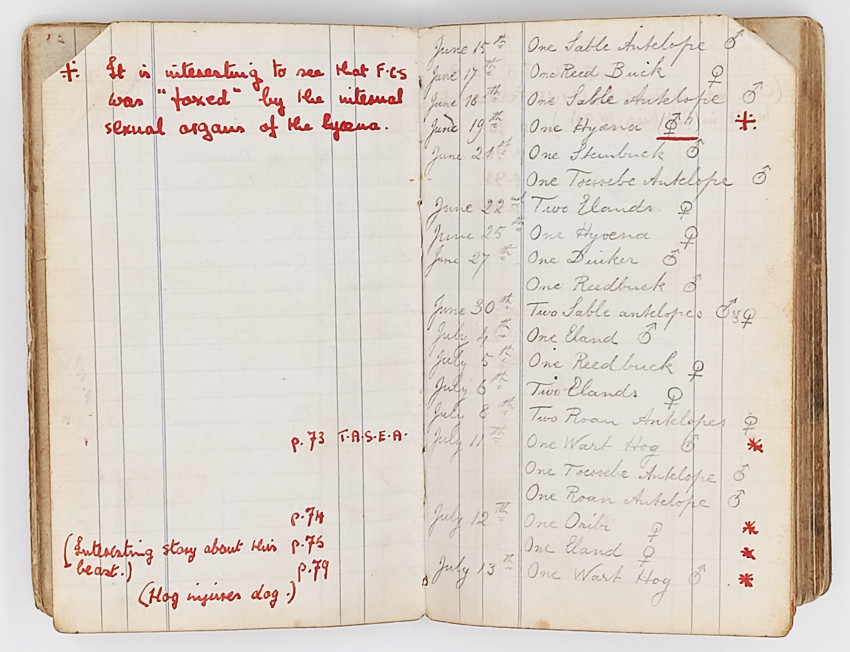 ⁜ It is interesting to see that F.C.S
was "foxed" by the internal
sexual organs of the hyæna.
p.73 T.A.S.E.A.
p.74
(Interesting story about this p.75
beast.)
p.79
(Hog injures dog.)
June 15th One Sable Antelope ♂
June 17th One Reed Buck ♀
June 18th One Sable Antelope ♂
June 19th One Hyæna ⁜
June 21st One Steinbuck ♂
One Toessebe Antelope ♂
June 22nd Two Elands ♀
June 25th One Hyæna ♀
June 27th One Duiker ♂
One Reedbuck ♂
June 30th Two Sable antelopes ♂ & ♀
July 4th One Eland ♂
July 5th One Reedbuck ♀
July 6th Two Elands ♀
July 8th Two Roan Antelopes ♀
July 11th One Wart Hog ♂ *
One Toessebe Antelope ♂
One Roan Antelope ♂
July 12th One Oribi ♀ *
One Eland ♀ *
July 13th One Wart Hog ♂ *